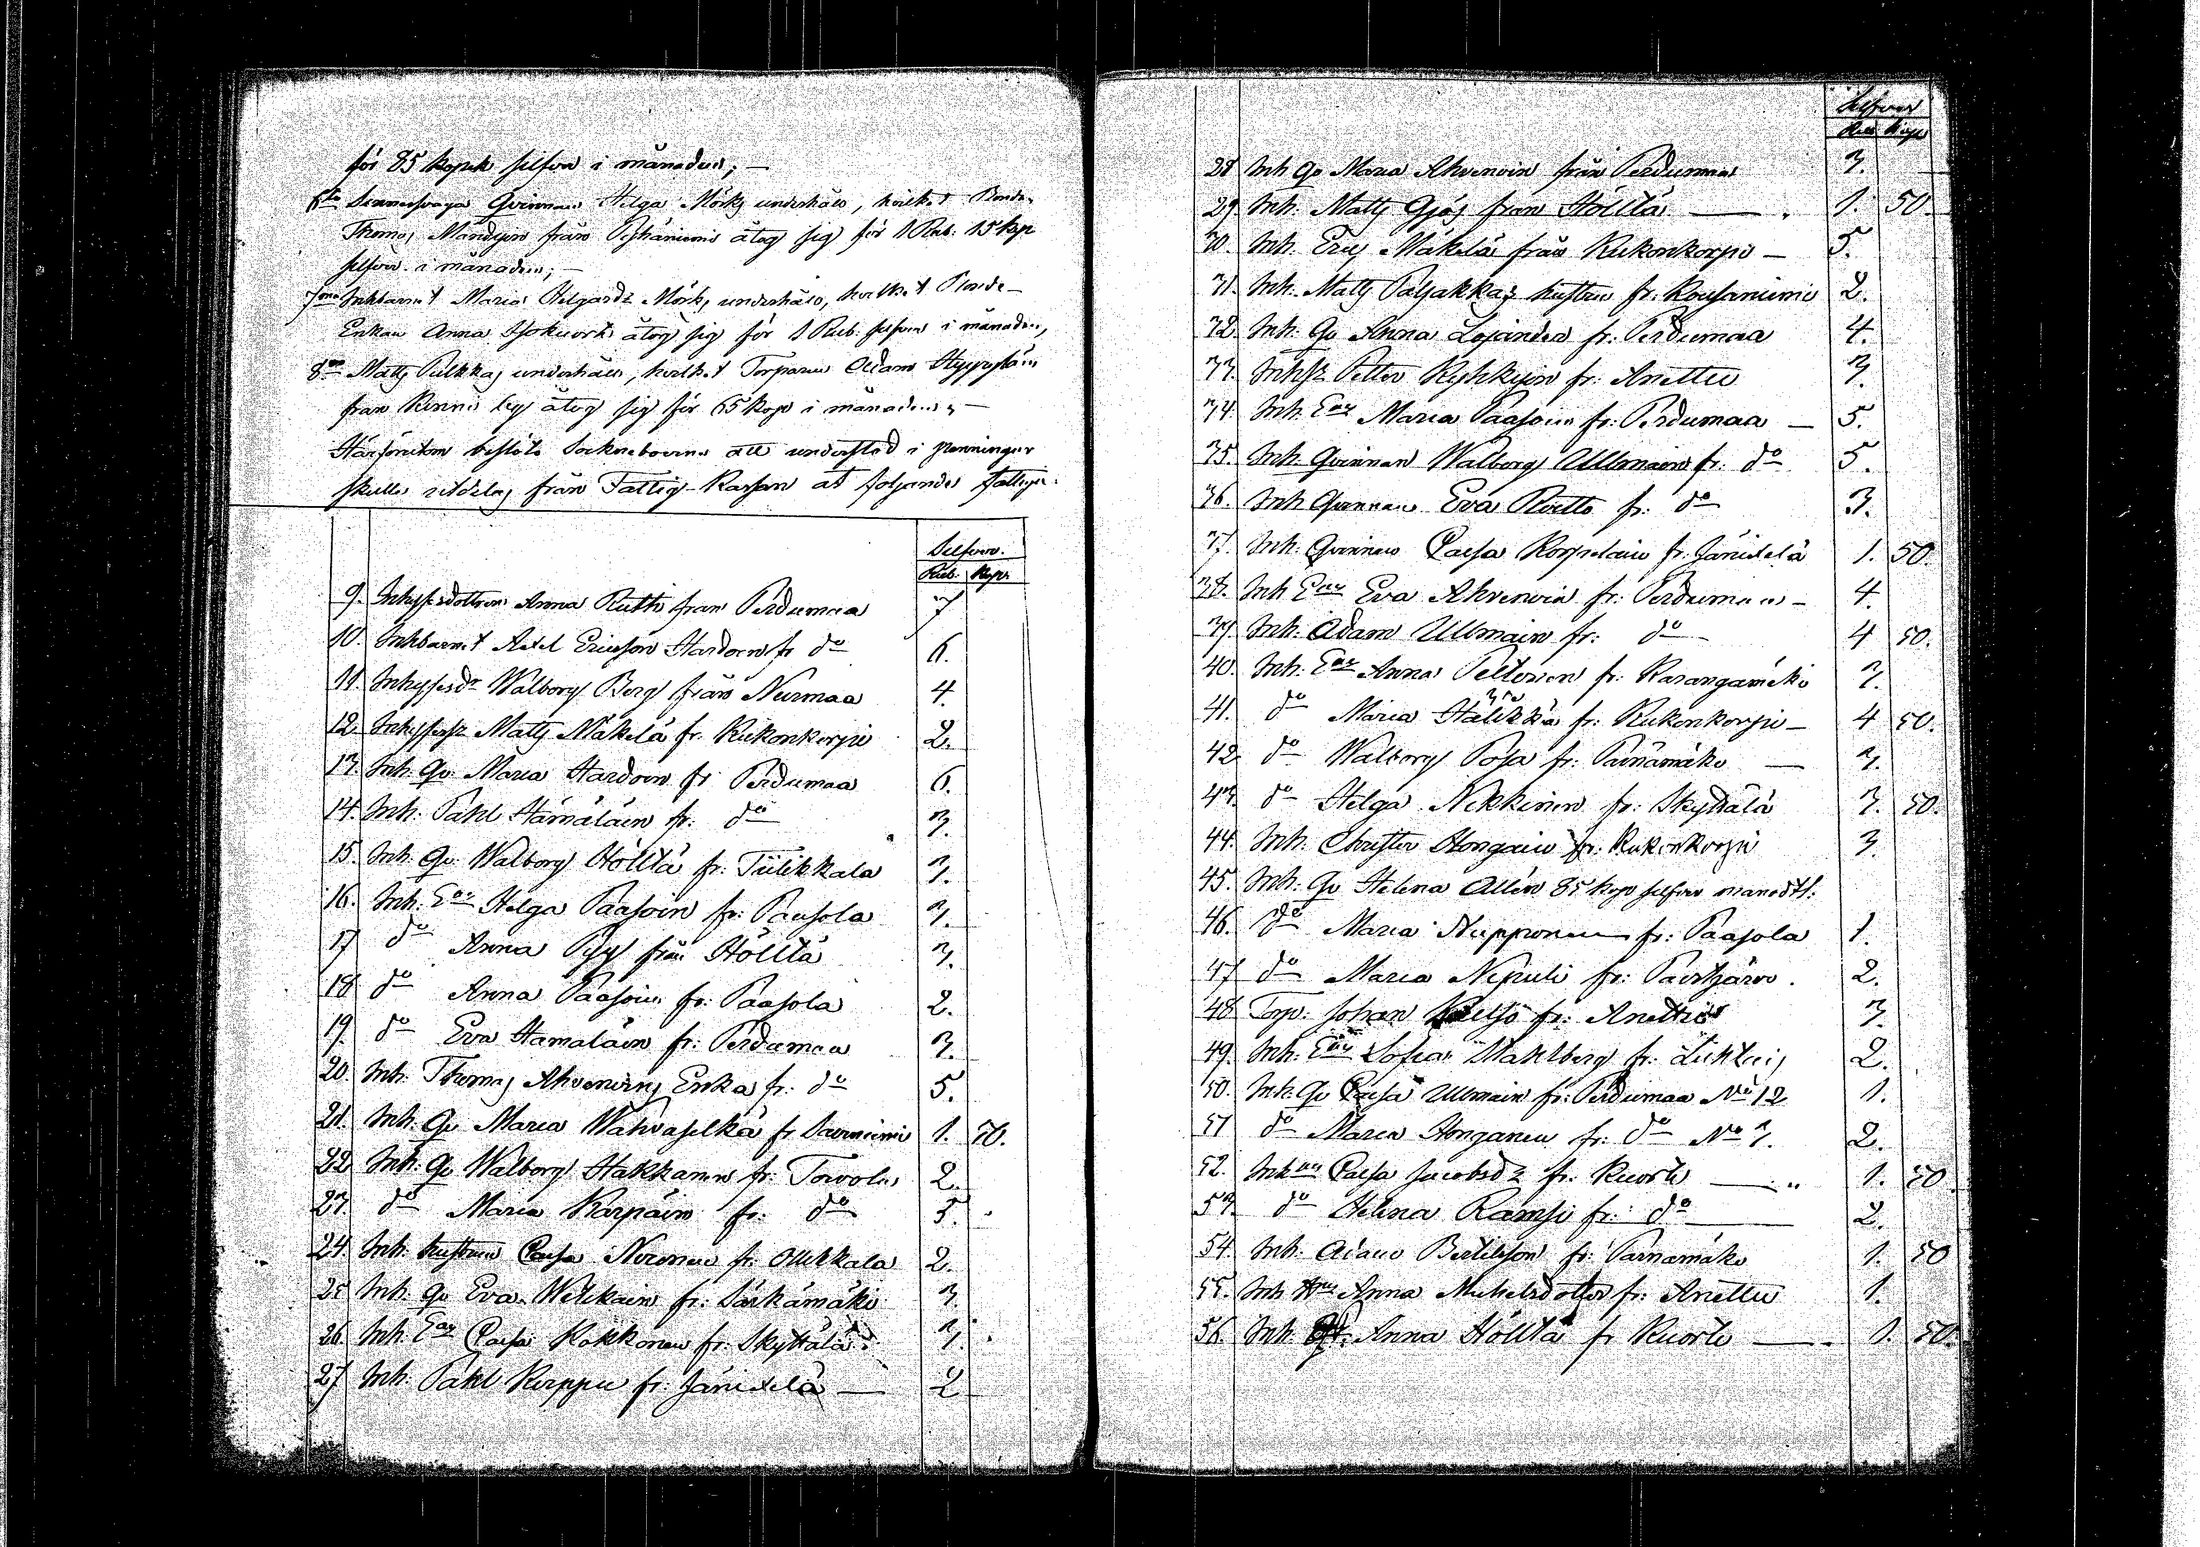 för 85 kopek silfver i månaden; —
6te Sinnessvaga Qvinnan Helga Mörks underhåll, hvilket Bonden
Thomas Mandyn från åtog sig för 1 Rub. 15 kop
silfver i månaden; —
7mo Inhbarnet Maria Helgasdr Mörks underhåll, hvilket Bonde-
Enkan Anna åtog sig för 1 Rub. silfver i månaden,
8vo Matts Pulkkas underhåll, hvilket Torparen Adam
från åtog sig för 65 kop i månaden; —
Härförutom beslöto Sockneboerne att understöd i penningar
skulle utdelas från Fattig-Kassan åt följande fattige:
Silfver.
Rub. Kop.
9. Inhysesdottren Anna Rutti från Perdumaa 7
10. Inhbarnet Axel Ericsson Hardoen fr do 6.
11. Inhysesdr Walborg Berg från Nurmaa 4.
12. Matts Mäkelä fr. Kukonkorpi 2.
13. Inh. Qv. Maria Hardoen fr Perdumaa 6.
14. Inh. Påhl Hämäläin fr. do 3.
15. Inh. Qv. Walborg Höltta fr. Tiilikkala 1.
16. Inh. Ean Helga Paasoin fr. Paasola 3.
17 do Anna från Hölttä 3.
18 do Anna Paasoin fr. Paasola 2.
19. do Eva Hämäläin fr. Perdumaa 3.
20. Inh. Thomas Ahvenains Enka fr. do 5.
21. Inh. Qv Maria Wahvaselkä fr Saviniemi 1. 50.
22 Inh. Qv Walborg Hakkanen fr. Torvola 2.
23. do Maria Karpäin fr. do 5.
24. Inh. hustrun Caisa Noronen fr. Ollikkala 2.
25 Inh. Qv Eva Welikain fr. Särkämäki 3.
26. Inh. Ean Caisa Kokkonen fr. Skyttälä 3.
27 Inh. Påhl Kurppu fr. Jänixelä — 2
Silfver
Rub Kop
28 Inh Qv Maria Ahvenoin från Perdumaa 3.
29 Inh. Matts Gjös från Hölttä — 1. 50
30. Inh. Eric Mäkelä från Kukonkorpi — 5.
31. Inh. Matts Paljakkas hustru fr. Kousaniemi 2.
32. Inh. Qv Anna Lojander fr. Perdumaa 4.
33. Petter Kyhkyin fr. Anettu 3.
34. Inh. Ean Maria Paasoin fr. Perdumaa — 5.
35. Inh. Qvinnan Walborg Ullmain fr. do 5.
36. Inh Qvinnan Eva fr. do 3.
37. Inh. Qvinnan Caisa Korpelain fr. Jänixelä 1. 50.
38. Inh Ean Eva Ahvenoin fr. Perdumaa — 4.
39. Inh. Adam Ullmain fr. do 4 50.
40. Inh. Ean Anna Peltonen fr. Karangamäki 3.
41. do Maria fr. Kukonkorpi — 4 50.
42 do Walborg Posa fr. Pärnämäki — 3.
43. do Helga Nikkinen fr. Skyttälä 3. 50.
44. Inh. Christer Hongain fr. Kukonkorpi 3.
45. Inh. Qv Helena Allén 85 kop silfver månadtl.
46. do Maria Nupponen fr. Paasola 1.
47 do Maria Nipuli fr. 2.
48 Torp. Johan fr. Anettu 3.
49. Inh. Ean Sofia Wahlberg fr. 2.
50. Inh. Qv Caisa Ullmain fr. Perdumaa No 12 1.
51 do Maria Honganen fr. do No 3. 2.
52. Caisa Jacobsdr fr. Kuorti — 1. 50
53. do Helina Ramsi fr. do — 2.
54. Inh. Adam Bertilsson fr. Pärnämäki 1. 50
55. Inh Anna Michelsdotter fr. Anettu 1.
56. Inh. Anna Hölttä fr Kuorti — 1. 50.